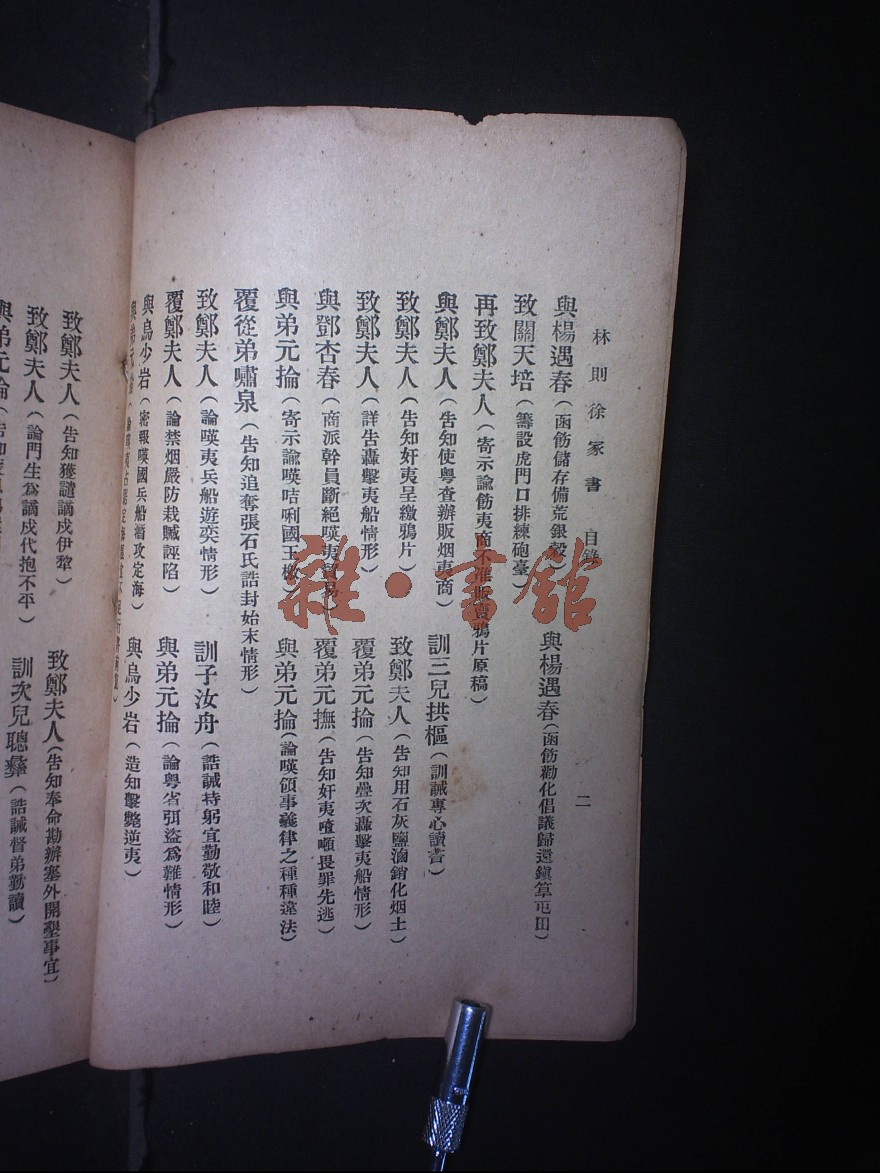 林則徐家書 目錄 二
與楊遇春(函飭儲存備荒銀穀) 與楊遇春(函飭勸化倡議歸還鎭筸屯田)
致關天培(籌設虎門口排練砲臺)
再致鄭夫人(寄示諭飭夷商不准販賣鴉片原稿)
與鄭夫人(告知使粵查辦販烟夷商) 訓三兒拱樞(訓誡專心讀書)
致鄭夫人(告知奸夷呈繳鴉片) 致鄭夫人(告知用石灰鹽滷銷化烟土)
致鄭夫人(詳告轟擊夷船情形) 覆弟元掄(告知疊次轟擊夷船情形)
與鄧杏春(商派幹員斷絕嘆夷貿易) 覆弟元撫(告知奸夷喳噸畏罪先逃)
與弟元掄(寄示諭嘆咭唎國王檄) 與弟元掄(論嘆領事義律之種種違法)
覆從弟嘯泉(告知追奪張石氏誥封始末情形)
致鄭夫人(論嘆夷兵船遊奕情形) 訓子汝舟(誥誡持躬宜勤敬和睦)
覆鄭夫人(論禁烟嚴防栽贓誣陷) 與弟元掄(論粵省弭盜爲難情形)
與烏少岩(密報嘆國兵船瀦攻定海) 與烏少岩(造知擊斃逆夷)
與弟元
致鄭夫人(告知獲譴謫戍伊犂) 致鄭夫人(告知奉命勘辦塞外開墾事宜)
致鄭夫人(論門生爲謫戍代抱不平) 訓次兒聰彝(誥誡督弟勤讀)
與弟元掄
雜·書館